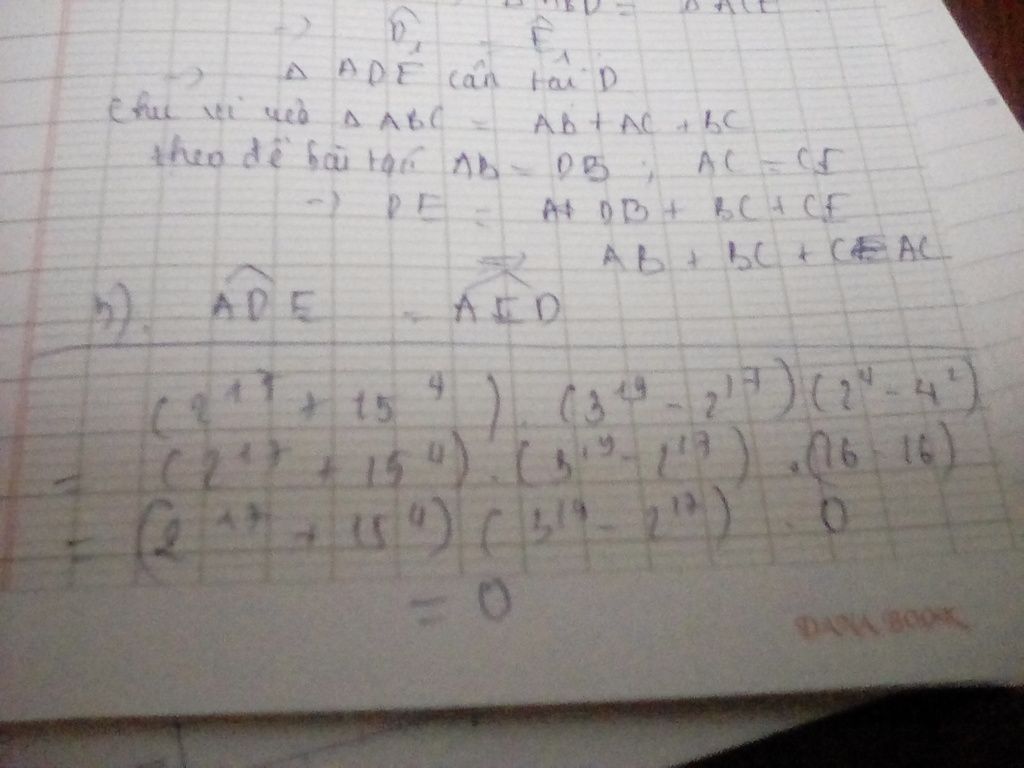 Δ ABD = Δ ACE
→ D̂₁ = Ê₁
→ Δ ADE cân tại D
Chu vi Δ ABC = AB + AC + BC
theo đề bài AB = DB ; AC = CE
→ DE = DB + BC + CE
= AB + BC + AC
ADE = AED
(2¹⁷ + 15⁴) . (3¹⁹ - 2¹⁷) (2⁴ - 4²)
= (2¹⁷ + 15⁴) . (3¹⁹ - 2¹⁷) . (16 - 16)
= (2¹⁷ + 15⁴) (3¹⁹ - 2¹⁷) . 0
= 0
DANA BOOK